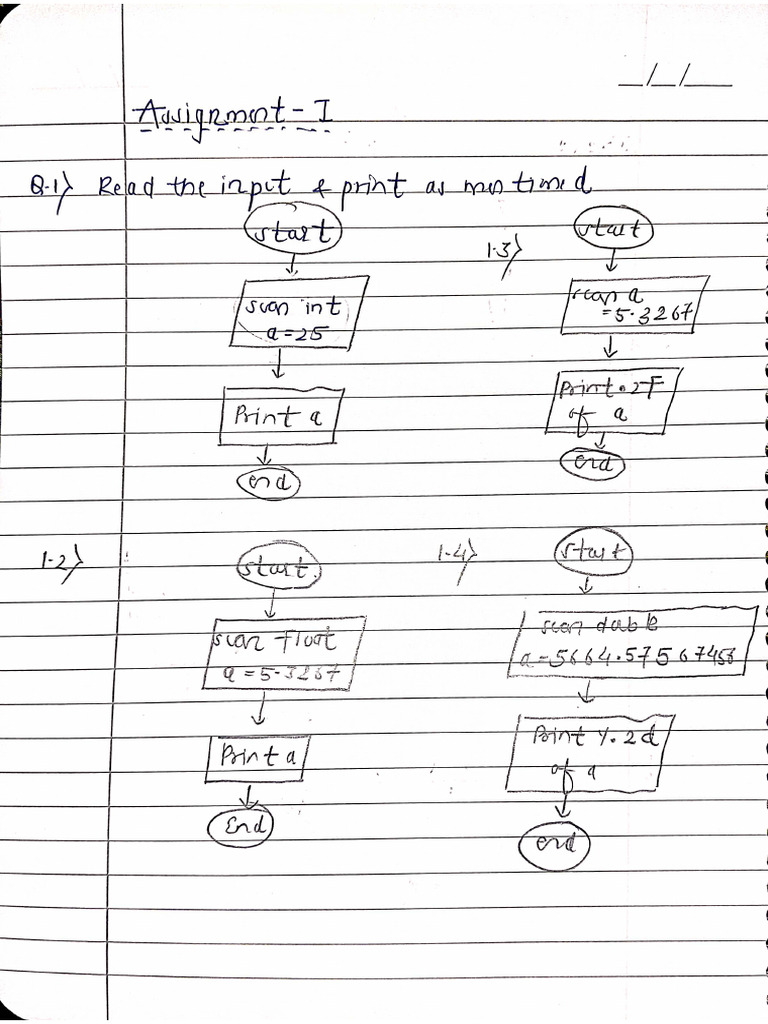 _/_/__
Assignment - I
Q.1) Read the input & print as mentioned
start
scan int
a=25
Print a
end
1.3)
start
scan a
=5.3267
Print .2F
of a
end
1.2)
start
scan float
a=5.3267
Print a
End
1.4)
start
scan duble
a=5664.57567458
Print %.2d
of a
end